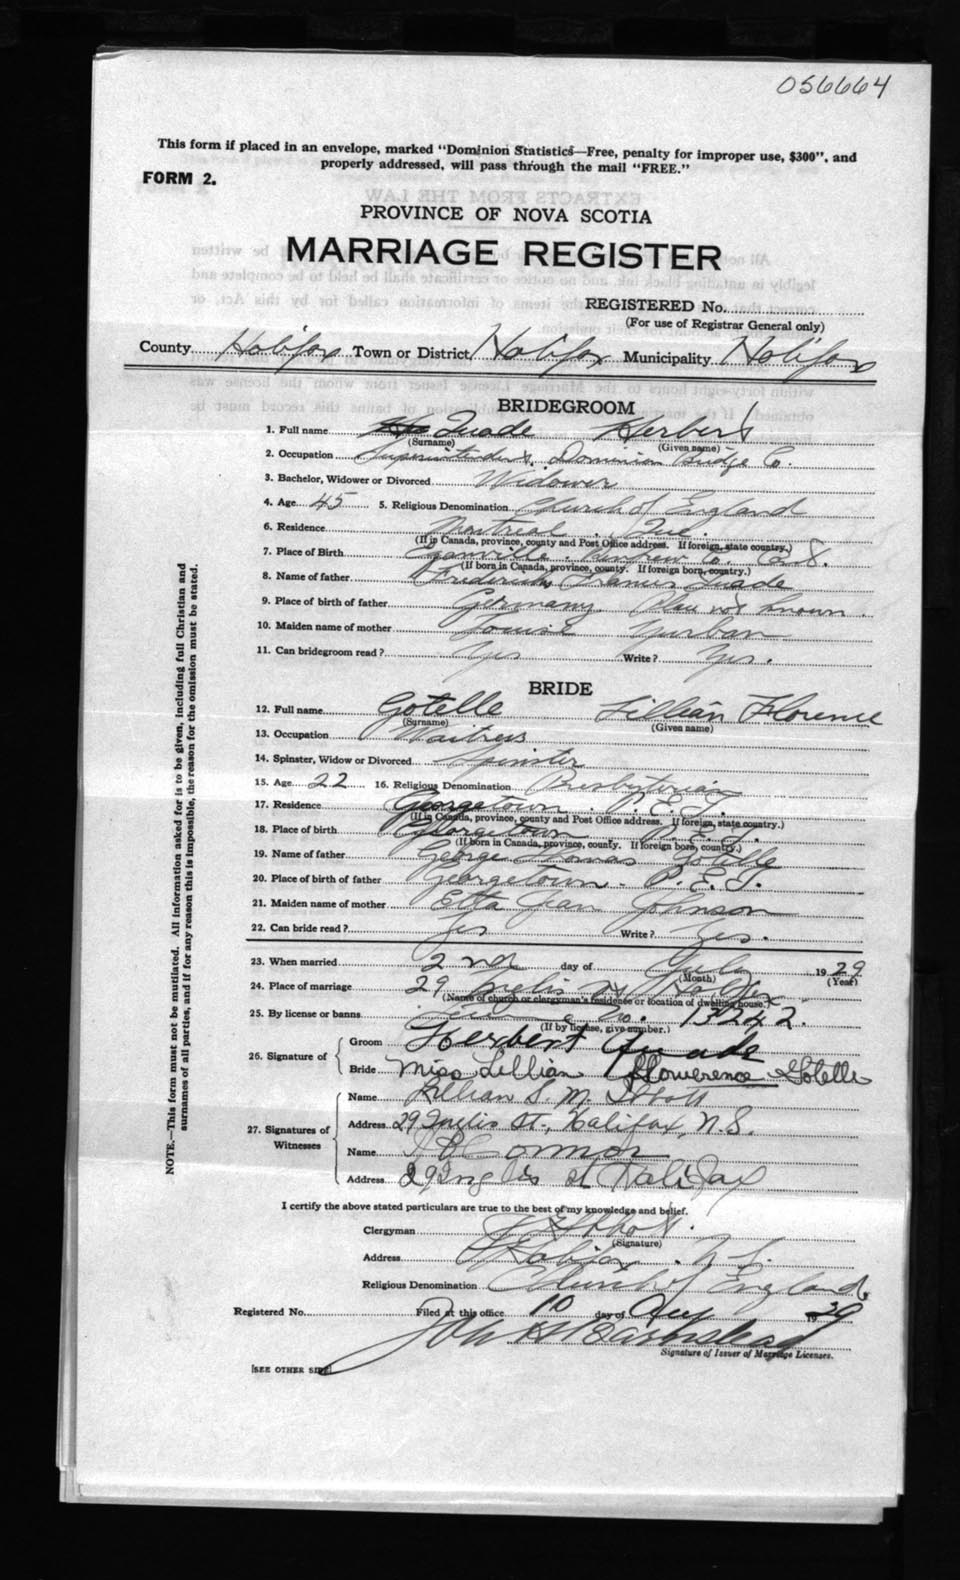 056664
This form if placed in an envelope, marked "Dominion Statistics—Free, penalty for improper use, $300", and
properly addressed, will pass through the mail "FREE."
FORM 2.
PROVINCE OF NOVA SCOTIA
MARRIAGE REGISTER
REGISTERED No.
(For use of Registrar General only)
County Halifax Town or District Halifax Municipality Halifax
BRIDEGROOM
1. Full name Quade Herbert
(Surname) (Given name)
2. Occupation Superintendent, Dominion Bridge Co.
3. Bachelor, Widower or Divorced Widower
4. Age 45 5. Religious Denomination Church of England
6. Residence Montreal. Que.
(If in Canada, province, county and Post Office address. If foreign, state country.)
7. Place of Birth Eganville. Renfrew Co.
(If born in Canada, province, county. If foreign born, country.)
8. Name of father Frederick Francis Quade
9. Place of birth of father Germany. Place not known.
10. Maiden name of mother Louise
11. Can bridegroom read? Yes Write? Yes.
BRIDE
12. Full name Gotelle Lillian Florence
(Surname) (Given name)
13. Occupation Waitress
14. Spinster, Widow or Divorced Spinster
15. Age 22 16. Religious Denomination Presbyterian
17. Residence Georgetown. P.E.I.
(If in Canada, province, county and Post Office address. If foreign, state country.)
18. Place of birth Georgetown P.E.I.
(If born in Canada, province, county. If foreign born, country.)
19. Name of father George Gotelle
20. Place of birth of father Georgetown. P.E.I.
21. Maiden name of mother Etta Jean Johnson
22. Can bride read? Yes Write? Yes.
23. When married 2nd day of July 1929
(Month) (Year)
24. Place of marriage 29 Inglis St Halifax
(Name of church or clergyman's residence or location of dwelling house.)
25. By license or banns License No. 13242.
(If by license, give number.)
26. Signature of
Groom Herbert Quade
Bride Miss Lillian Flowerence Gotelle
27. Signatures of Witnesses
Name Lillian S. M. Abbott
Address 29 Inglis St., Halifax, N.S.
Name
Address 29 Inglis st Halifax
I certify the above stated particulars are true to the best of my knowledge and belief.
Clergyman Abbott.
(Signature)
Address Halifax. N.S.
Religious Denomination Church of England.
Registered No. Filed at this office 10 day of 1929
John
Signature of Issuer of Marriage Licenses.
[SEE OTHER SIDE]
NOTE.—This form must not be mutilated. All information asked for is to be given, including full Christian and
surnames of all parties, and if for any reason this is impossible, the reason for the omission must be stated.